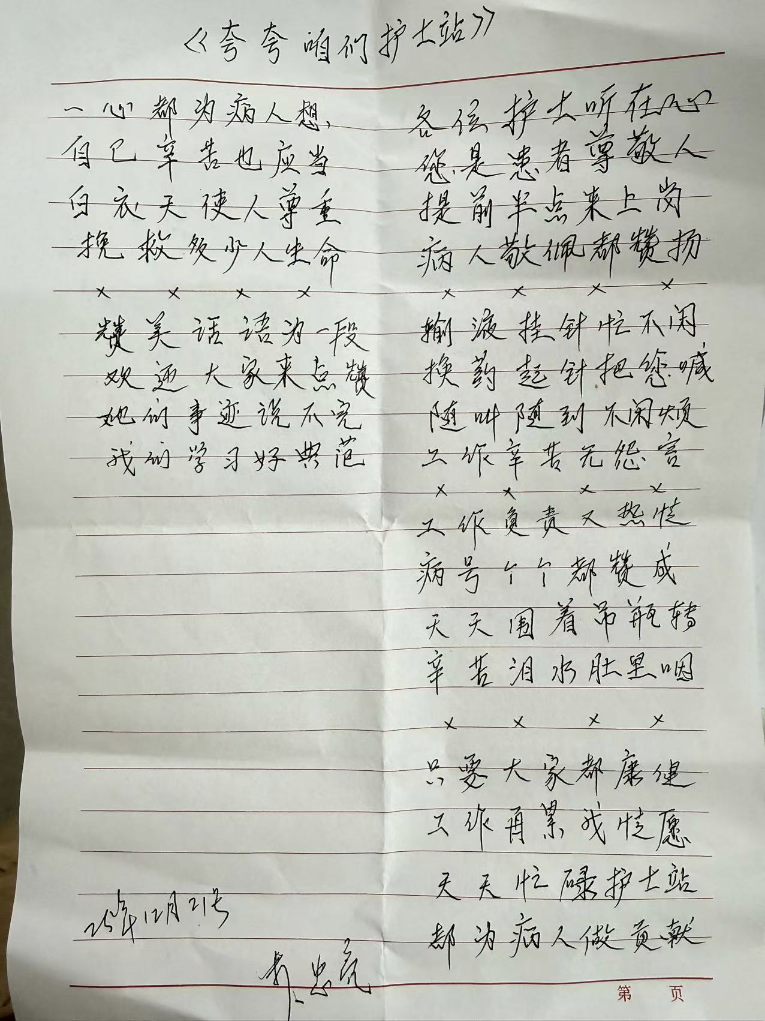 《夸夸咱们护士站》
各位护士听在心
您是患者尊敬人
提前半点来上岗
病人敬佩都赞扬
× × × ×
输液挂针忙不闲
换药起针把您喊
随叫随到不闲烦
工作辛苦无怨言
× × × ×
工作负责又热情
病号个个都赞成
天天围着吊瓶转
辛苦泪水肚里咽
× × × ×
只要大家都康健
工作再累我情愿
天天忙碌护士站
都为病人做贡献
一心都为病人想,
自己辛苦也应当
白衣天使人尊重
挽救多少人生命
× × × ×
赞美话语为一段
欢迎大家来点赞
她们事迹说不完
我们学习好典范
25年12月21号
第 页